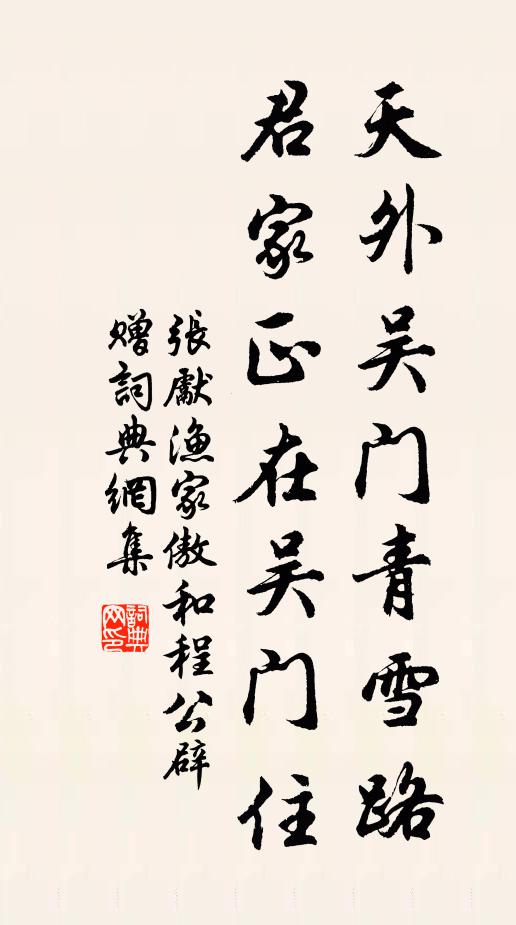 天外吴门青雪路
君家正在吴门住
張獻漁家傲和程公辟
赠詞典網集
詞典网印